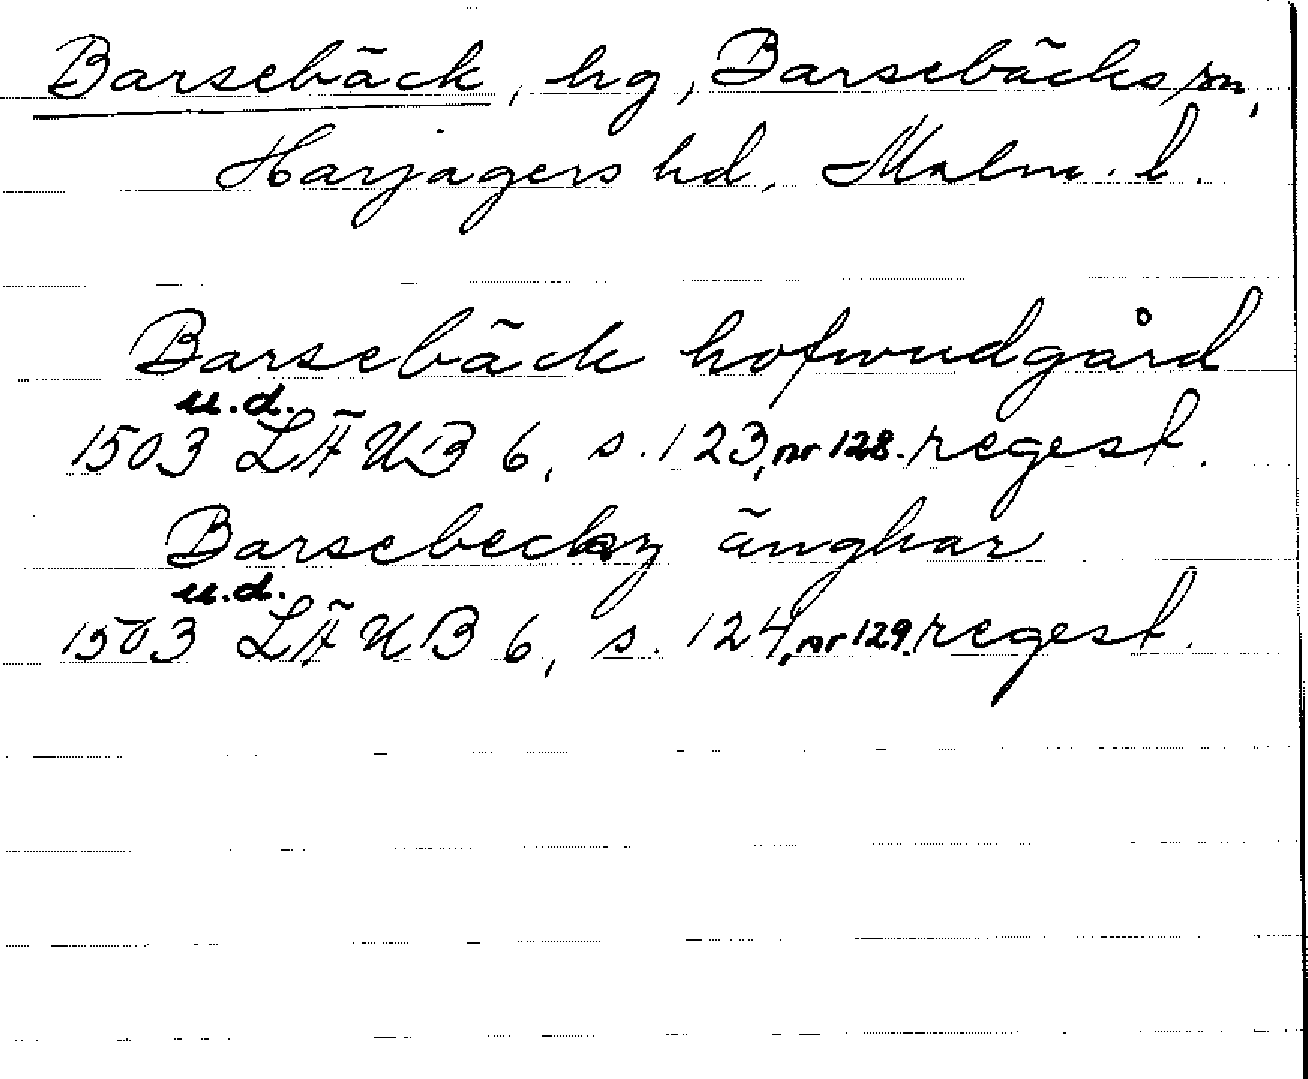 Barsebäck, hg, Barsebäcks sn,
Harjagers hd, Malm. l.
Barsebäck hofwudgård
u.d.
1503 LÄUB 6, s. 123, nr 128. regest.
Barsebeckz änghar
u.d.
1503 LÄUB 6, s. 124, nr 129. regest.